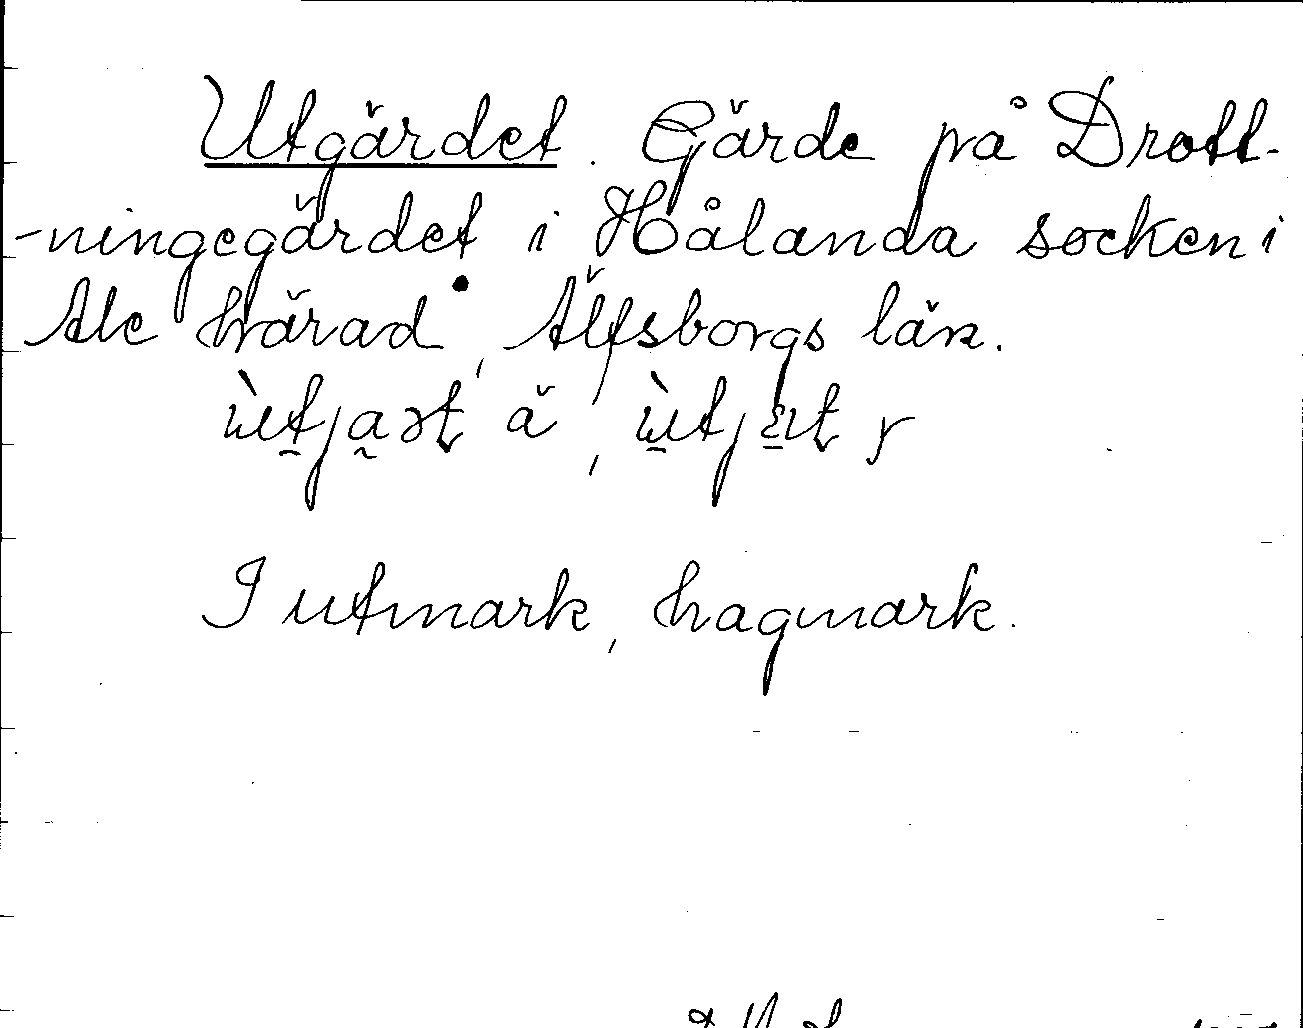 Utgärdet. Gärde på Drott-
-ningegärdet i Hålanda socken i
Ale härad, Älfsborgs län.
I utmark, hagmark.